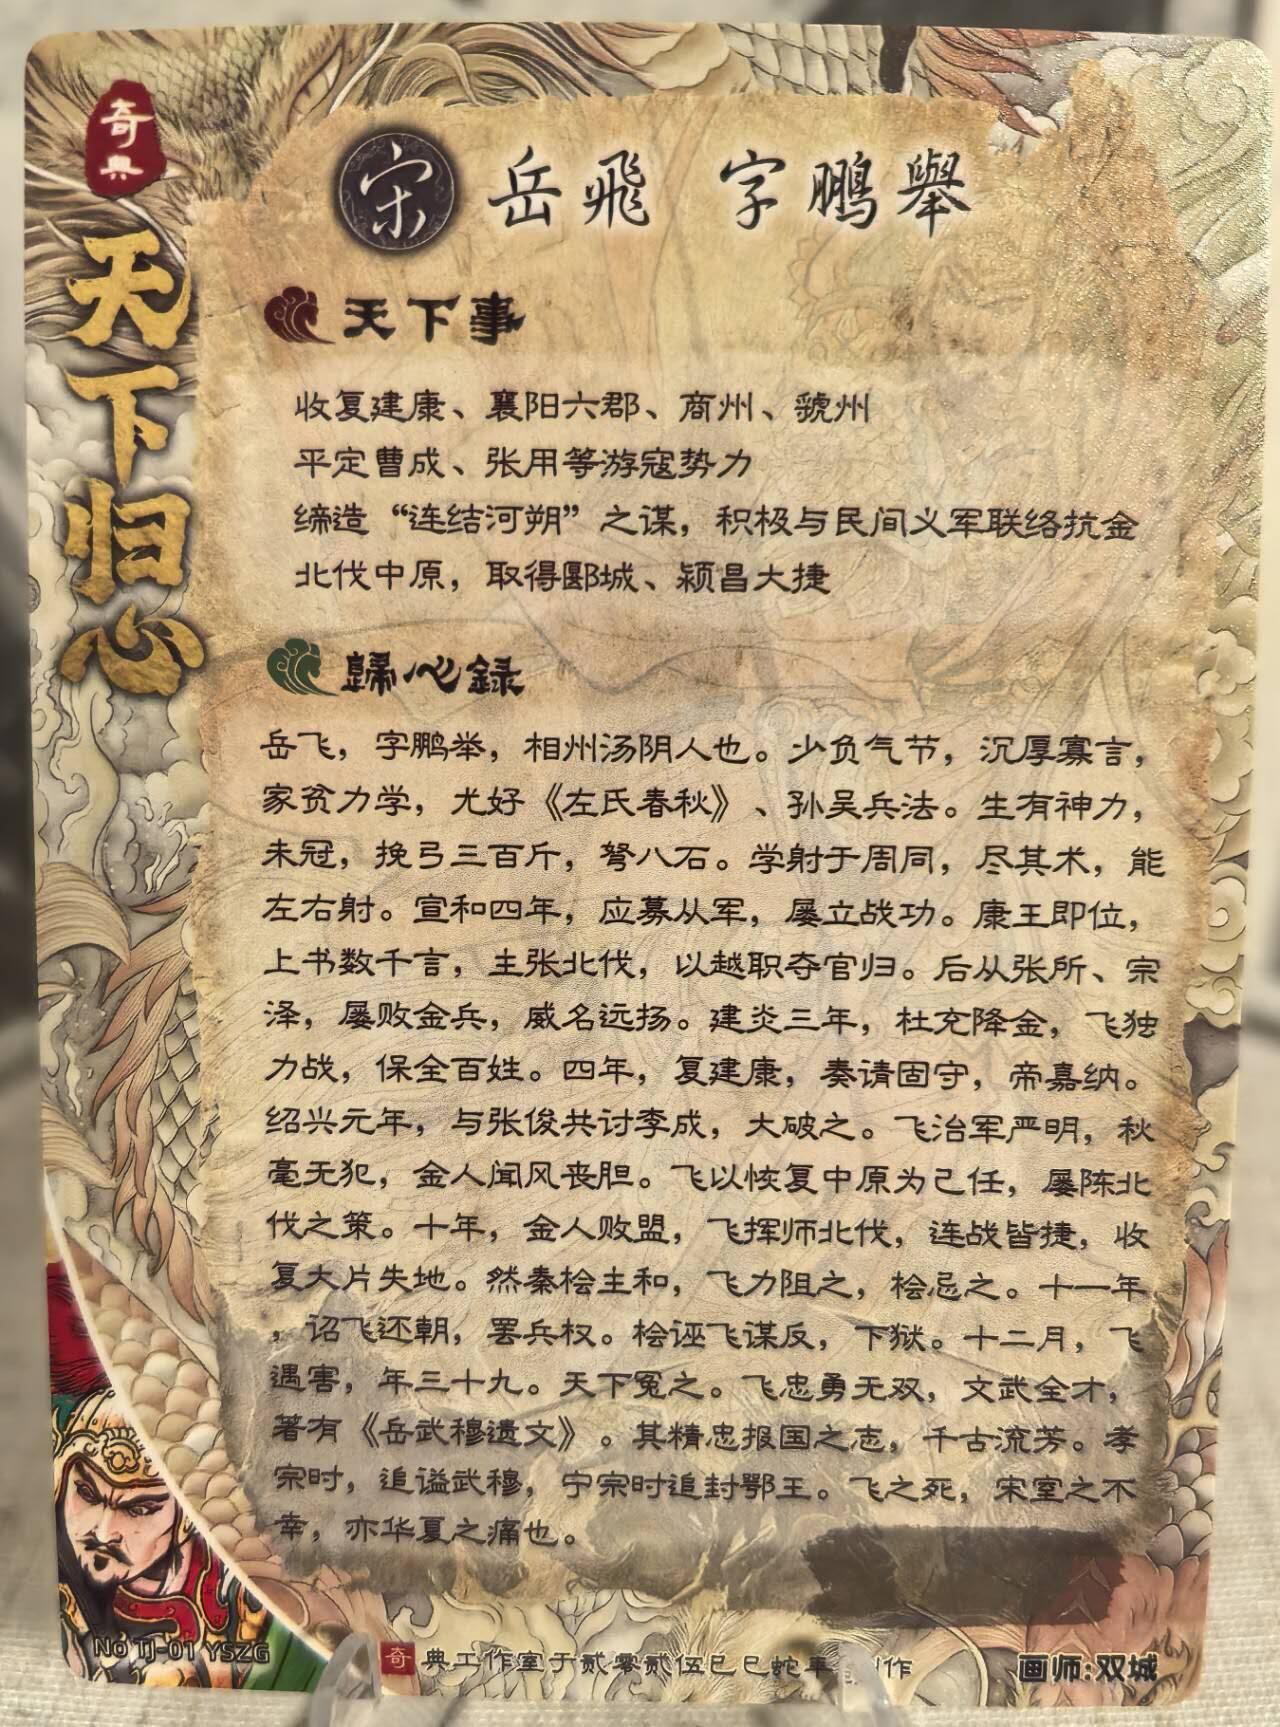 奇典
天下归心
宋 岳飛 字鵬舉
天下事
收复建康、襄阳六郡、商州、虢州
平定曹成、张用等游寇势力
缔造“连结河朔”之谋，积极与民间义军联络抗金
北伐中原，取得郾城、颍昌大捷
歸心録
岳飞，字鹏举，相州汤阴人也。少负气节，沉厚寡言，
家贫力学，尤好《左氏春秋》、孙吴兵法。生有神力，
未冠，挽弓三百斤，弩八石。学射于周同，尽其术，能
左右射。宣和四年，应募从军，屡立战功。康王即位，
上书数千言，主张北伐，以越职夺官归。后从张所、宗
泽，屡败金兵，威名远扬。建炎三年，杜充降金，飞独
力战，保全百姓。四年，复建康，奏请固守，帝嘉纳。
绍兴元年，与张俊共讨李成，大破之。飞治军严明，秋
毫无犯，金人闻风丧胆。飞以恢复中原为己任，屡陈北
伐之策。十年，金人败盟，飞挥师北伐，连战皆捷，收
复大片失地。然秦桧主和，飞力阻之，桧忌之。十一年
，诏飞还朝，罢兵权。桧诬飞谋反，下狱。十二月，飞
遇害，年三十九。天下冤之。飞忠勇无双，文武全才，
著有《岳武穆遗文》。其精忠报国之志，千古流芳。孝
宗时，追谥武穆，宁宗时追封鄂王。飞之死，宋室之不
幸，亦华夏之痛也。
No TJ-01 YSZG
奇典工作室于贰零贰伍巳巳蛇年创作
画师:双城